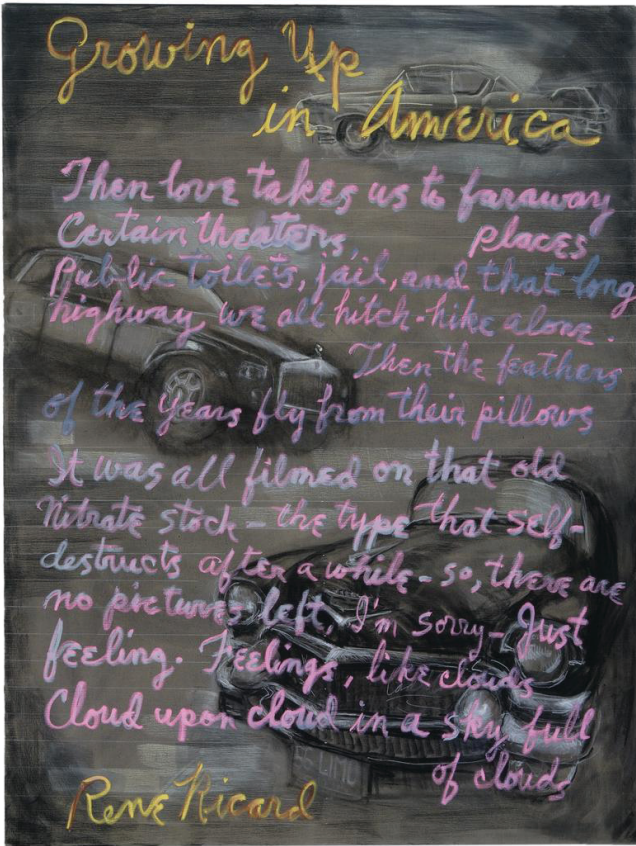 Growing Up
in America
Then love takes us to faraway
Certain theaters, places
Public Toilets, jail, and that long
highway we all hitch-hike alone.
Then the feathers
of the years fly from their pillows
It was all filmed on that old
Nitrate stock – the type that self-
destructs after a while – so, there are
no pictures left, I'm sorry – Just
feeling. Feelings, like clouds
Cloud upon cloud in a sky full
of clouds
Rene Ricard